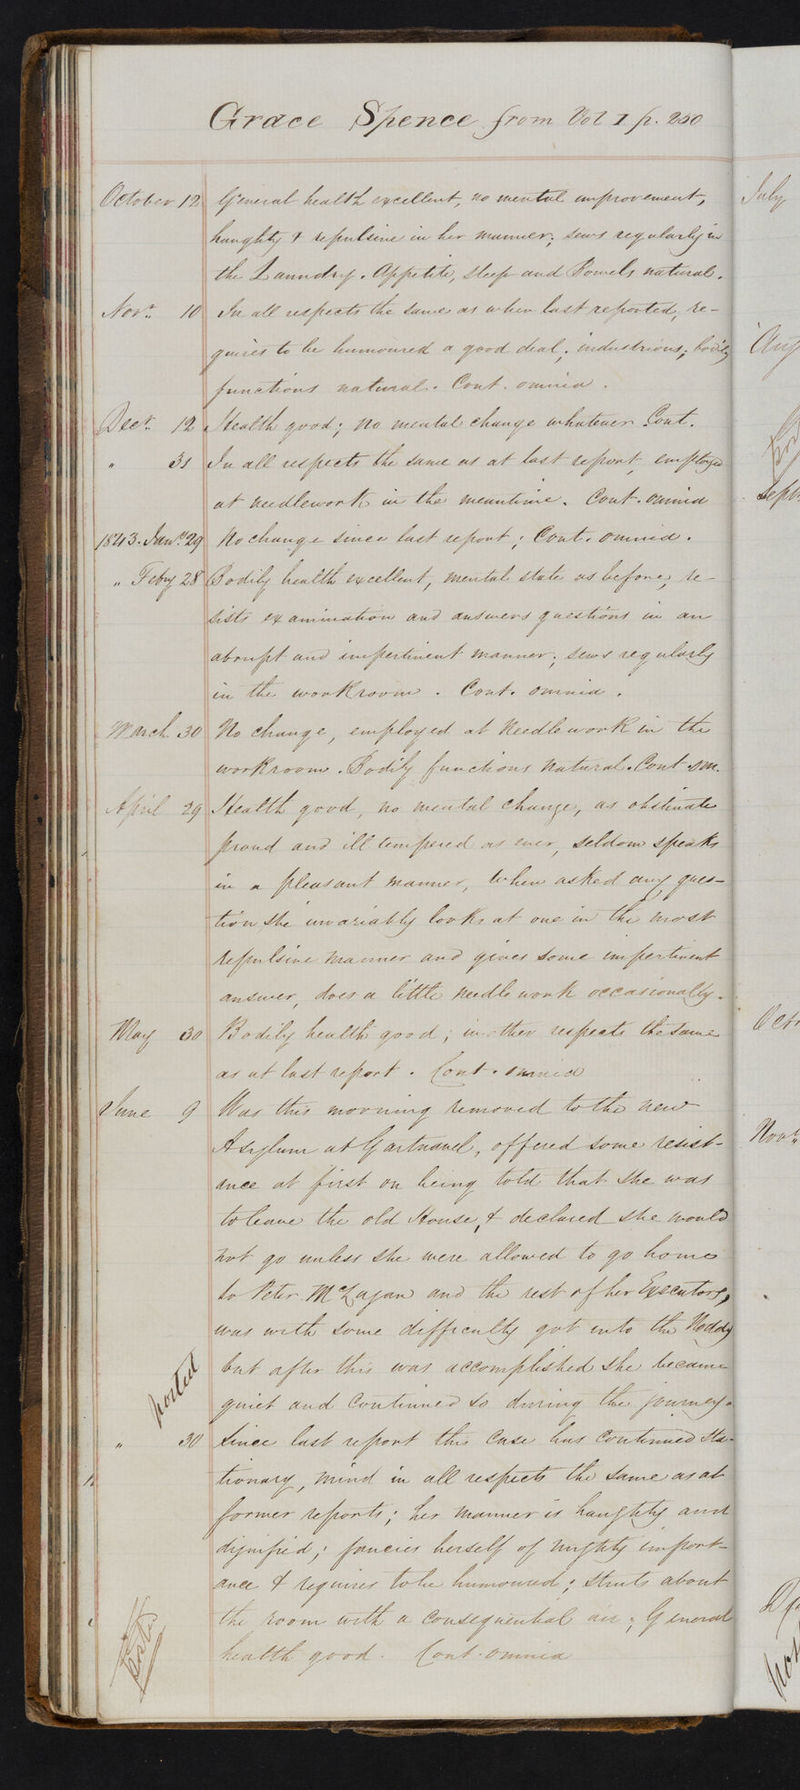 Grace Spence from Vol 1 p. 250
October 12 General health excellent, no mental improvement,
haughty & repulsive in her manner; sews regularly in
the Laundry. Appetite, sleep and Bowels natural.
Novr. 10 In all respects the same as when last reported, re-
quires to be humoured a good deal; industrious; bodily
functions natural. Cont. omnia.
Decr. 12 Health good; no mental change whatever. Cont.
" 31 In all respects the same as at last report, employed
at needlework in the meantime. Cont. omnia
1843. Jany. 29 No change since last report; Cont. omnia.
" Feby 28 Bodily health excellent, mental state as before, re-
sists examination and answers questions in an
abrupt and impertinent manner; sews regularly
in the workroom. Cont. omnia.
March 30 No change, employed at needlework in the
workroom. Bodily functions natural. Cont. om.
April 29 Health good, no mental change, as obstinate
proud and ill tempered as ever, seldom speaks
in a pleasant manner, when asked any ques-
tion she invariably looks at one in the most
repulsive manner and gives some impertinent
answer, does a little needle work occasionally.
May 30 Bodily health good; in other respects the same
as at last report. Cont. omnia
June 9 Was this morning removed to the new
Asylum at Gartnavel, offered some resist-
ance at first on being told that she was
to leave the old House, & declared she would
not go unless she were allowed to go home
to Peter McLagan and the rest of her Executors,
was with some difficulty got into the Noddy
but after this was accomplished she became
quiet and continued so during the journey.
posted
" 30 Since last report this case has continued sta-
tionary, mind in all respects the same as at
former reports; her manner is haughty and
dignified; fancies herself of mighty import-
ance & requires to be humoured; struts about
the room with a consequential air; General
health good. Cont. omnia
posted
July
Aug
Sept
Octr
Novr